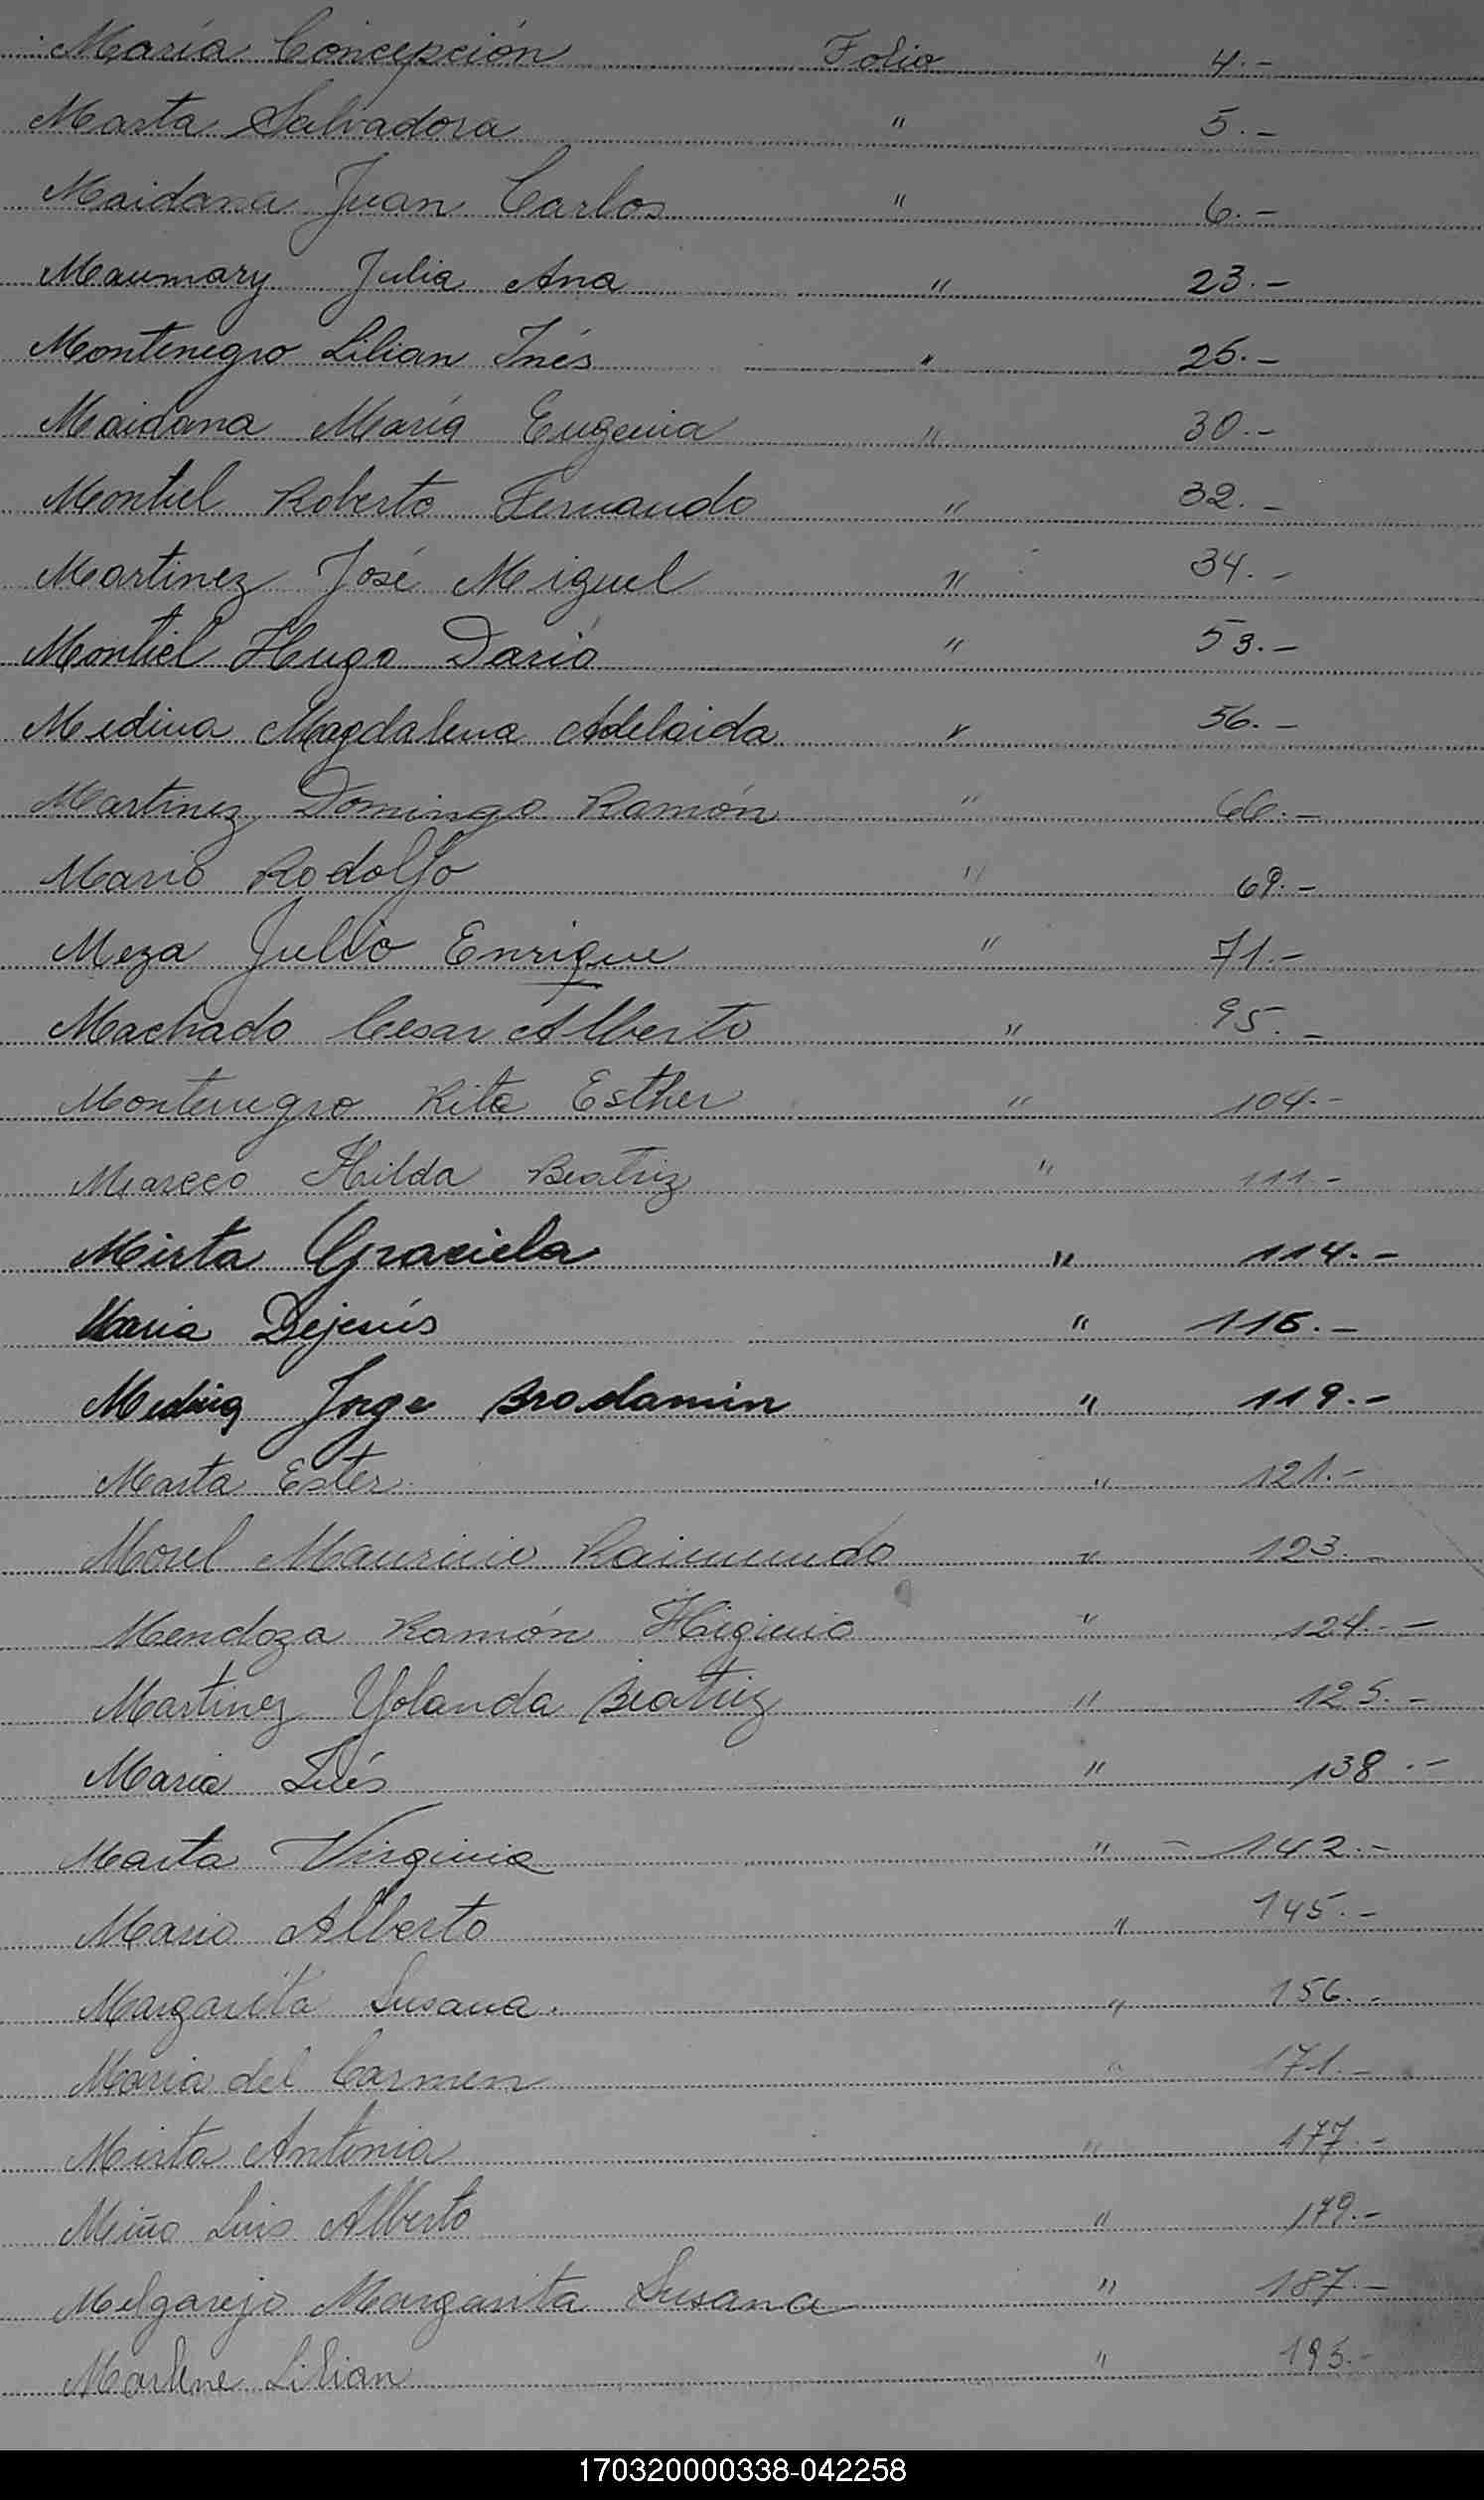 María Concepción Folio 4.-
Marta Salvadora " 5.-
Maidana Juan Carlos " 6.-
Maumary Julia Ana " 23.-
Montenegro Lilian Inés " 25.-
Maidana María Eugenia " 30.-
Montiel Roberto Fernando " 32.-
Martinez José Miguel " 34.-
Montiel Hugo Darió " 53.-
Medina Magdalena Adelaida " 56.-
Martinez Domingo Ramón " 66.-
Mario Rodolfo " 69.-
Meza Julio Enrique " 71.-
Machado Cesar Alberto " 95.-
Montenegro Rita Esther " 104.-
Mareco Hilda Beatriz " 111.-
Mirta Graciela " 114.-
Maria Dejesús " 116.-
Medina Jorge Bradamin " 119.-
Marta Ester " 121.-
Morel Mauricio Raimundo " 123.-
Mendoza Ramón Higinio " 124.-
Martinez Yolanda Beatriz " 125.-
Maria Inés " 138.-
Marta Virginia " - 142.-
Mario Alberto " 145.-
Margarita Susana. " 156.-
Maria del Carmen " 171.-
Mirta Antonia " 177.-
Miño Luis Alberto " 179.-
Melgarejo Margarita Susana " 187.-
Marlene Lilian " 195.-
170320000338-042258